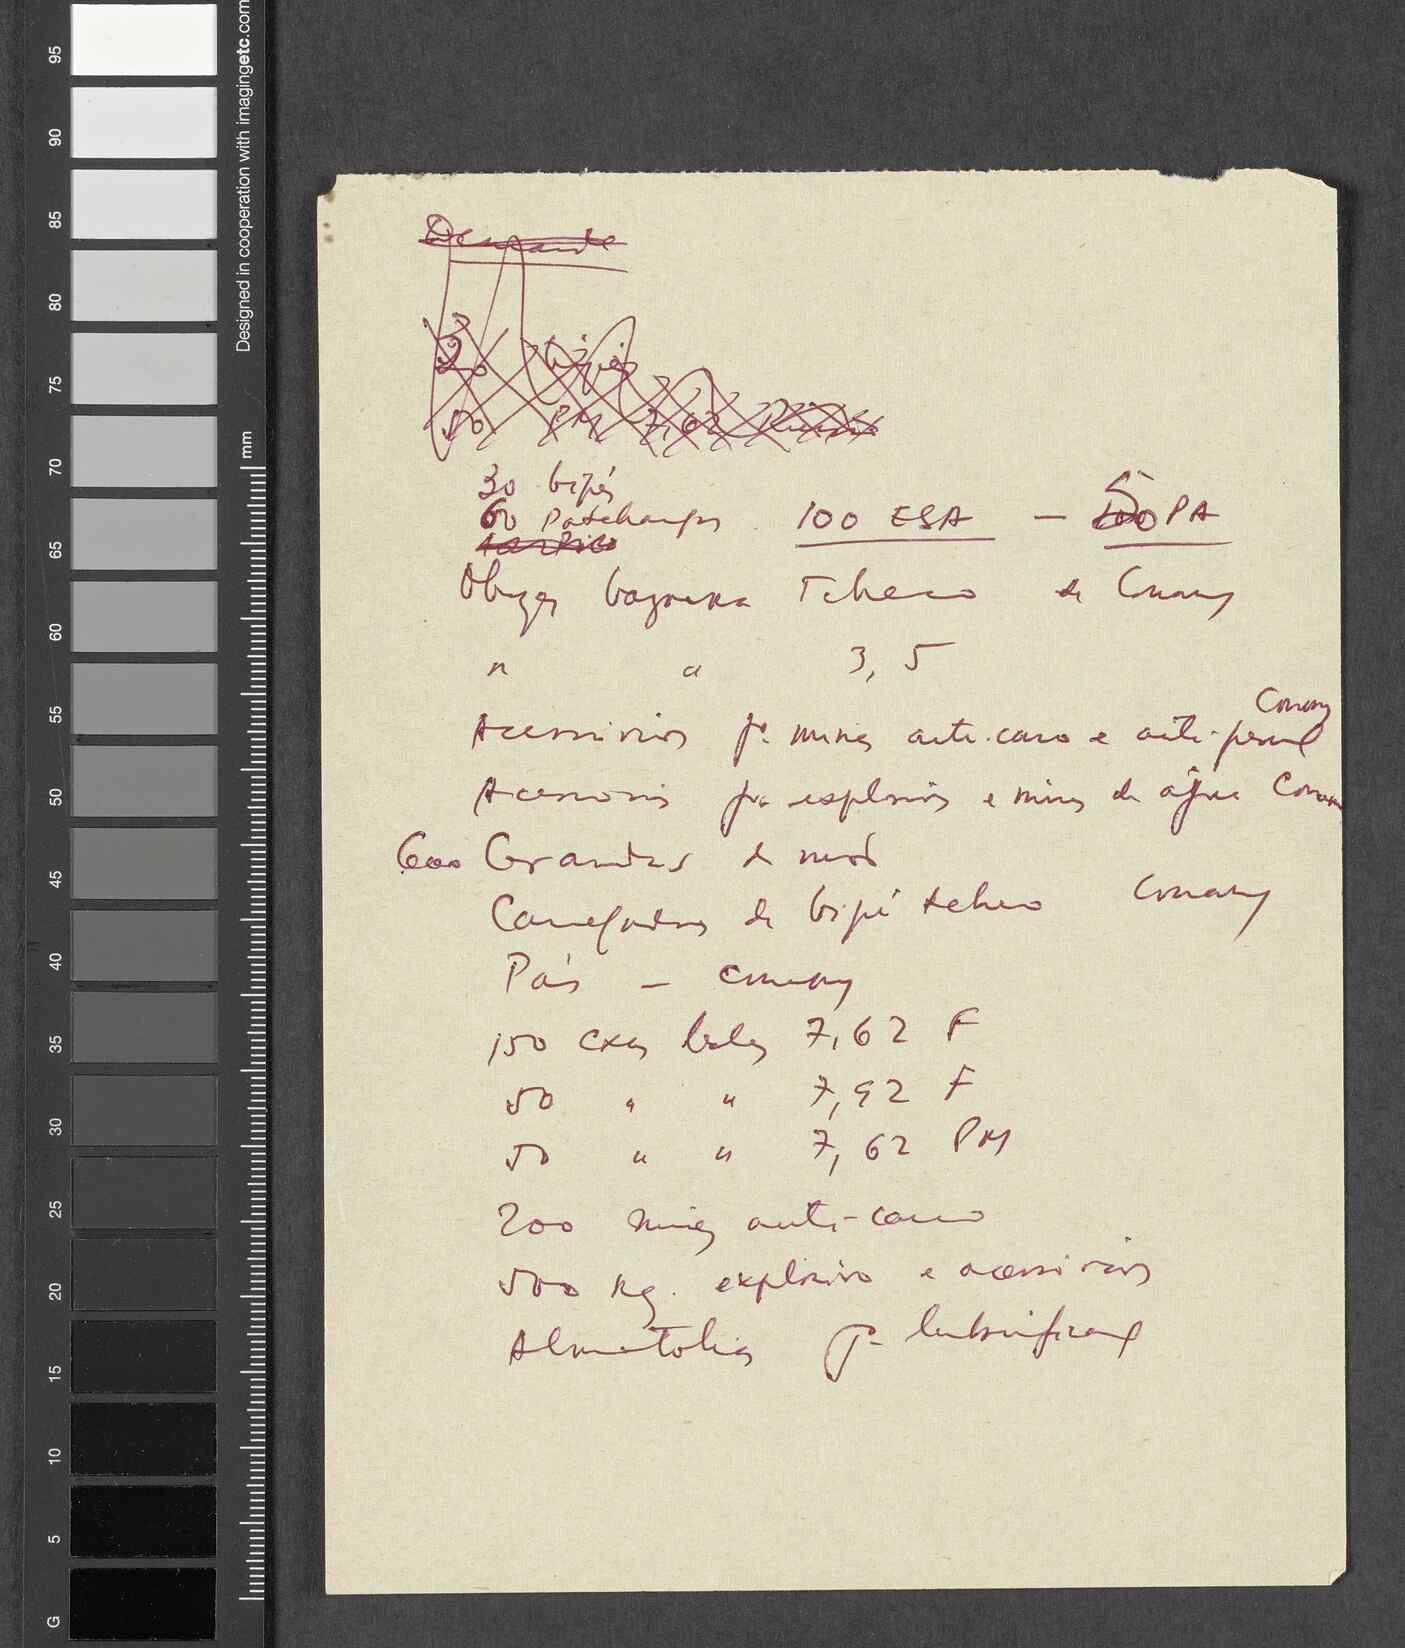 95
90
85
80
75
70
65
60
55
50
45
40
35
30
25
20
15
10
5
G
Designed in cooperation with imagingetc.com
mm
Demande
20 bipés
50 PM 7,62
30 bipés
60 Patchangas 100 ESA — 50 PA
Obuzes bazooka Tcheco de Conakry
" " 3,5
Acessórios pª minas anti-carro e anti-pessoal Conakry
Acessórios pª explosivos e minas de água Conakry
600 Granadas de mão
Carregadores de bipé tcheco Conakry
Pás — Conakry
150 cxas balas 7,62 F
50 " " 7,92 F
50 " " 7,62 PM
200 minas anti-carro
500 kg. explosivo e acessórios
Almotolias pª